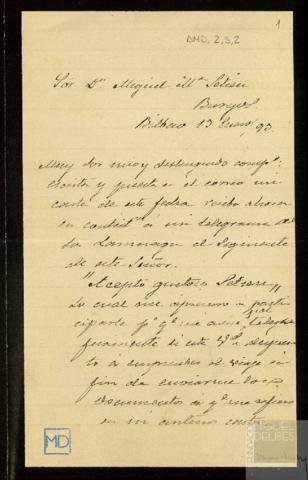 1
DMD, 2,3,2
Sor Dn Miguel Ma Setien
Burgos.
Bilbao 13 Enero/93.
Muy Sor mio y distinguido compo:
escrita y puesta en el correo mi
carta de esta fecha recibo ahora
en contestn á un telegrama
el siguiente
de este Señor.
"Acepto gustoso Setien"
Lo cual me apresuro a parti
ciparle pa qe me avise telegra
ficamente si está V. dispues
to á emprender el viaje á
fin de enviarme los
documentos á qe me refiero
en mi anterior carta
MD
FUNDACIÓN
MIGUEL
DELIBES